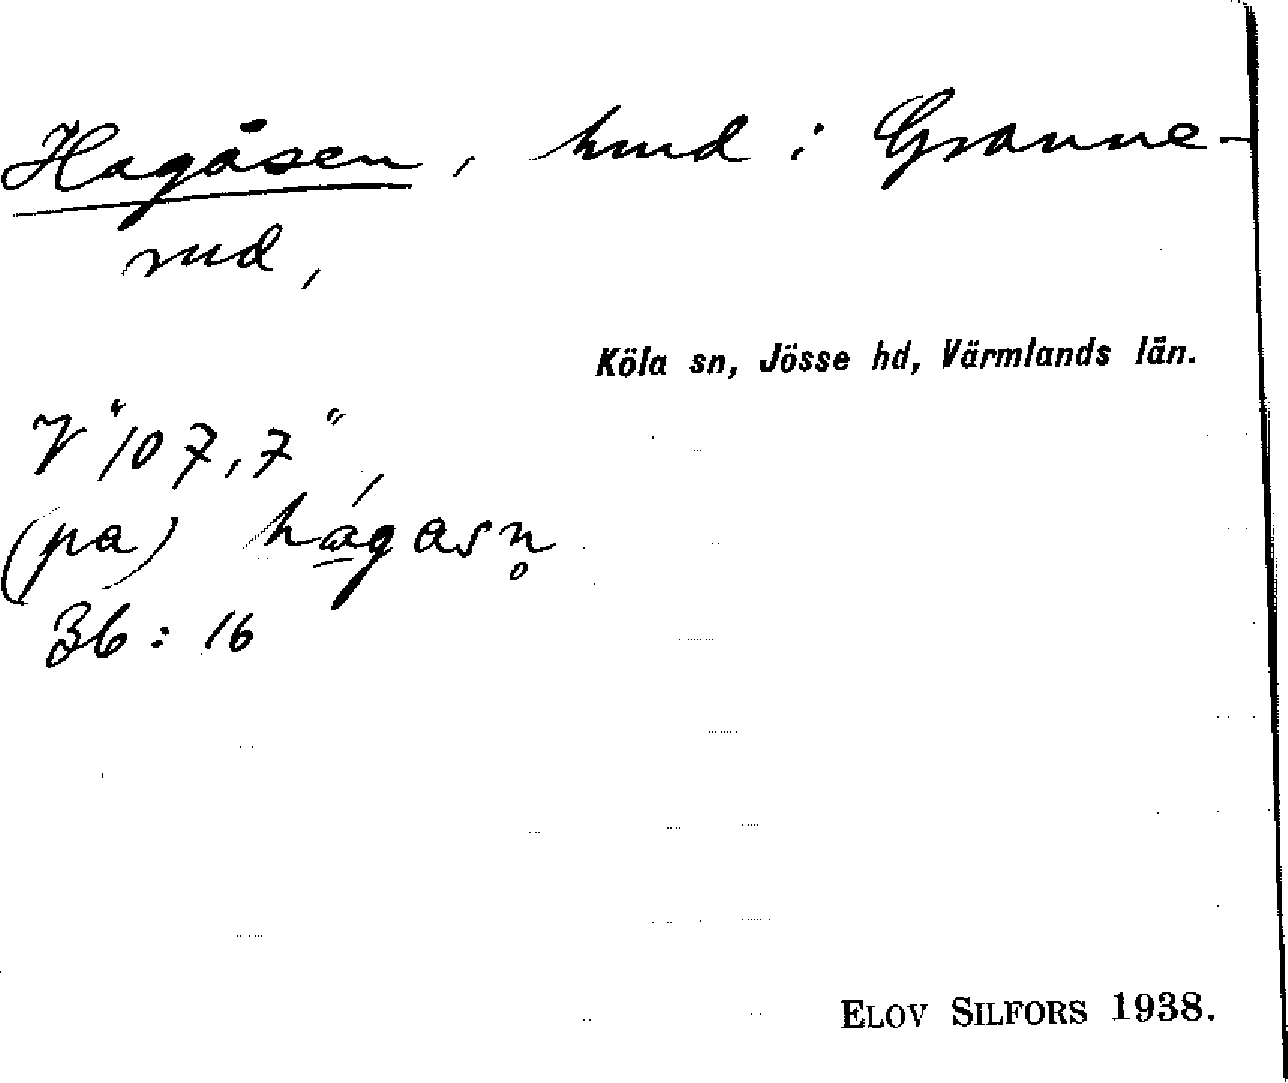 Hagåsen, hmd i Granne-
rud,
Köla sn, Jösse hd, Värmlands län.
V "107,7",
(pa) hágasn̥
36:16
ELOV SILFORS 1938.